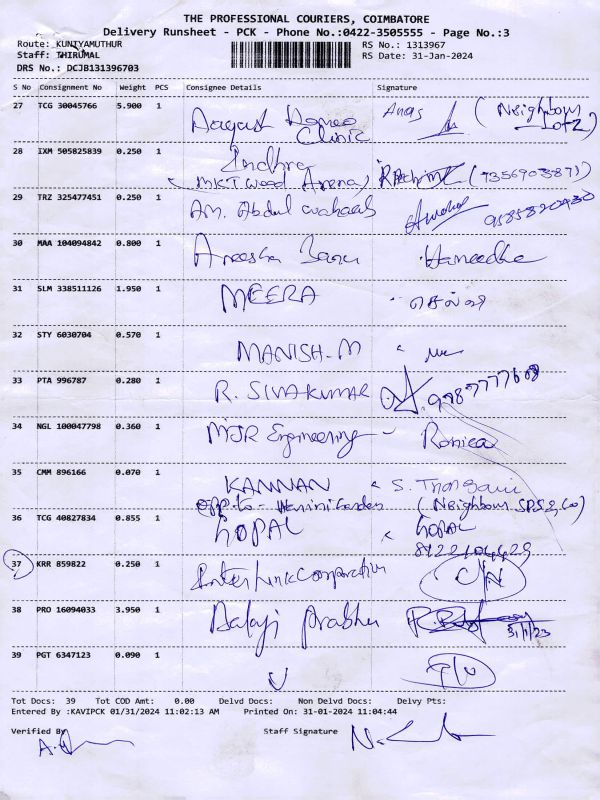 THE PROFESSIONAL COURIERS, COIMBATORE
Delivery Runsheet - PCK - Phone No.:0422-3505555 - Page No.:3
Route: KUNIYAMUTHUR
RS No.: 1313967
Staff: THIRUMAL
RS Date: 31-Jan-2024
DRS No.: DCJB131396703
S No Consignment No Weight PCS Consignee Details Signature
27 TCG 30045766 5.900 1 Clinic Anas (Neighbour
28 IXM 505825839 0.250 1 Indhra
MKT Wood Arena
29 TRZ 325477451 0.250 1 Am. Abdul wahaab 9585820930
30 MAA 104094842 0.800 1 Areesha Banu Haneedha
31 SLM 338511126 1.950 1 MEERA செல்வி
32 STY 6030704 0.570 1 MANISH-M
33 PTA 996787 0.280 1 R. SIVAKUMAR
34 NGL 100047798 0.360 1 MJR Engineering - Ronica
35 CMM 896166 0.070 1 KANNAN
opp.to - Garden (Neighbour
36 TCG 40827834 0.855 1 GOPAL GOPAL
37 KRR 859822 0.250 1 Inter Link Corporation
38 PRO 16094033 3.950 1 Balaji Prabhu 31/1/23
39 PGT 6347123 0.090 1
Tot Docs: 39 Tot COD Amt: 0.00 Delvd Docs: Non Delvd Docs: Delvy Pts:
Entered By :KAVIPCK 01/31/2024 11:02:13 AM Printed On: 31-01-2024 11:04:44
Verified By Staff Signature